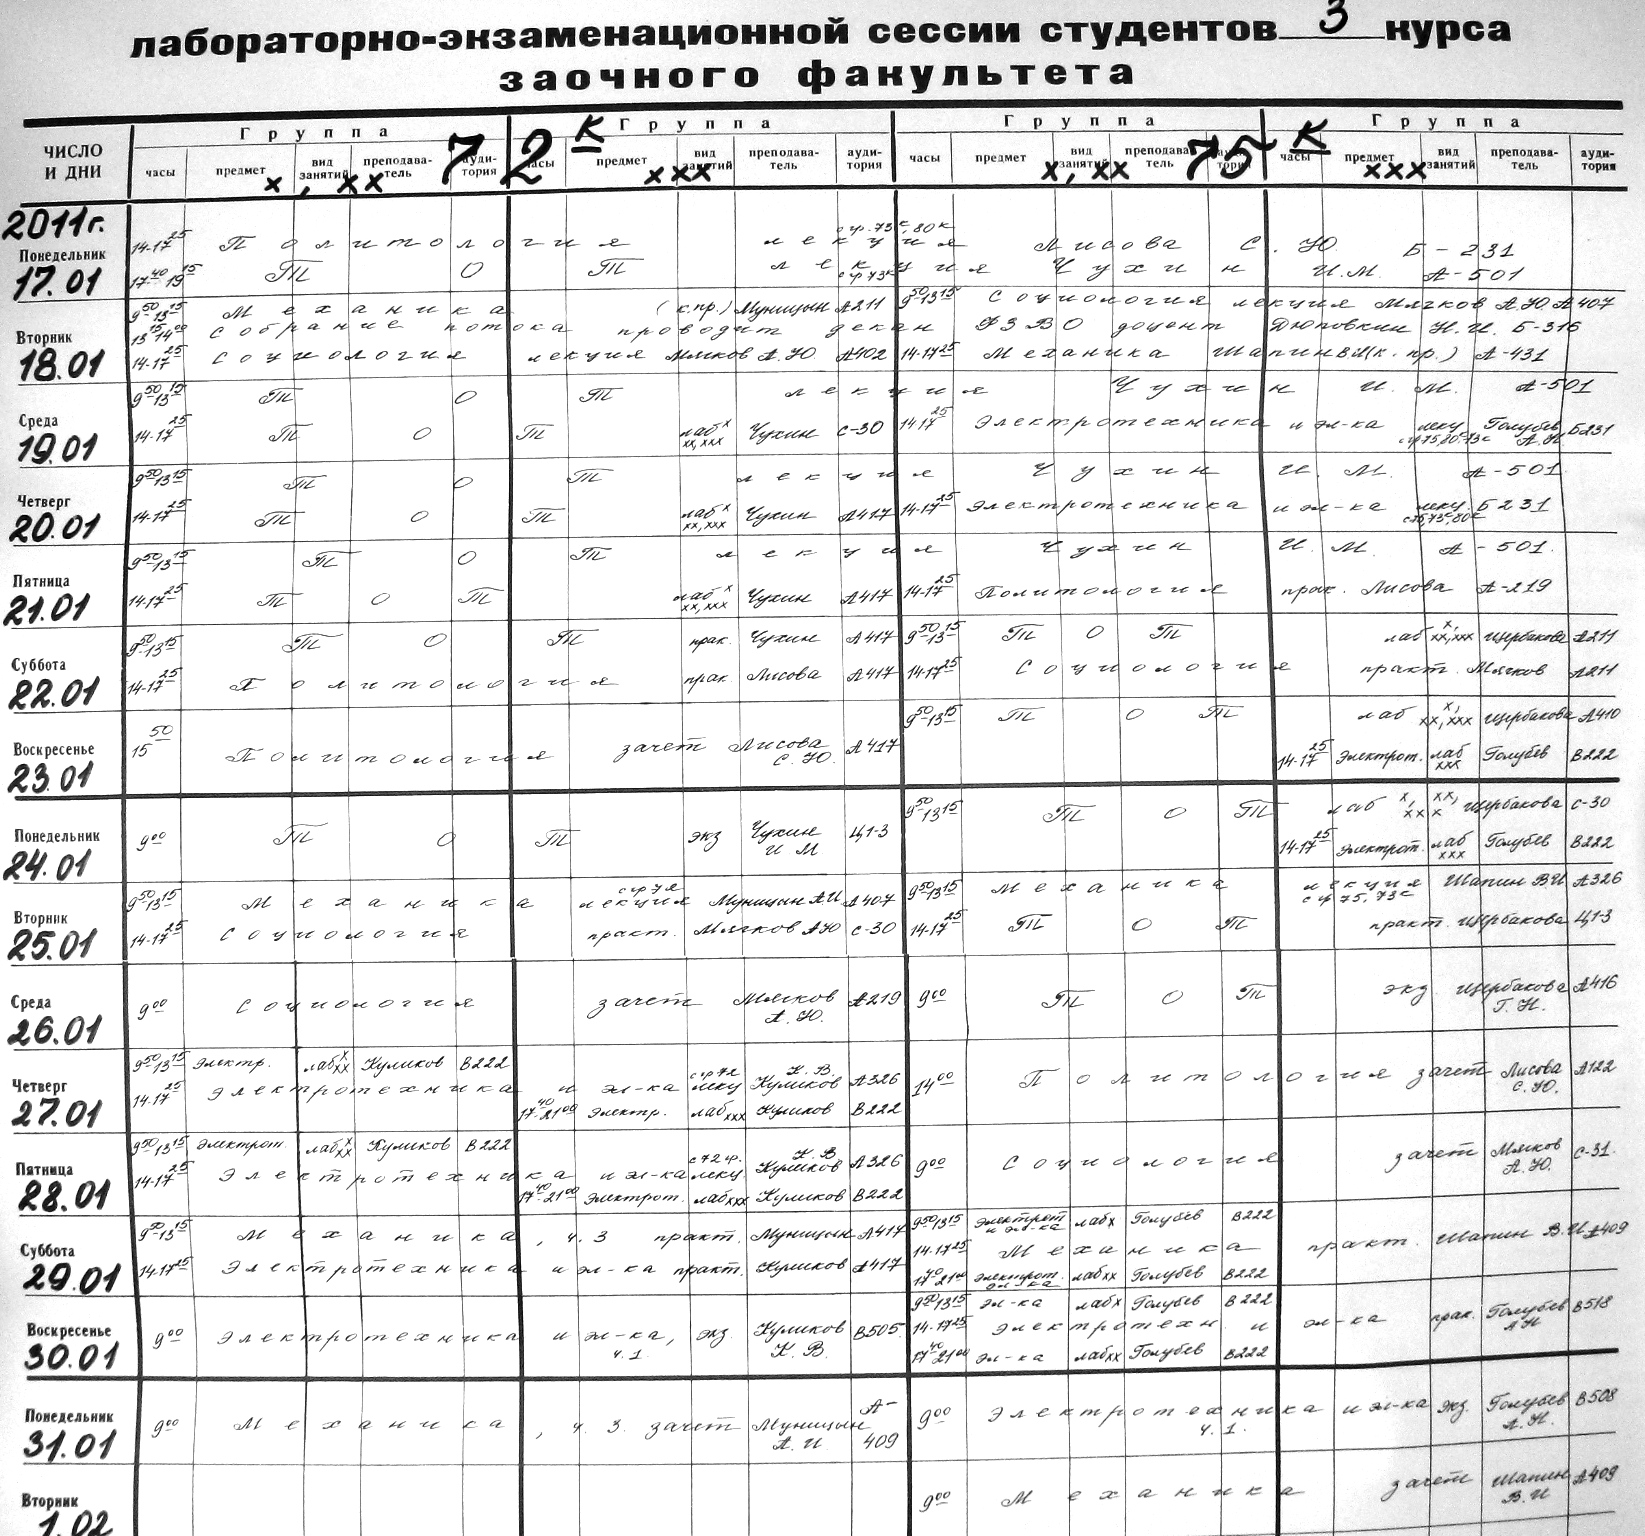 лабораторно-экзаменационной сессии студентов 3 курса
заочного факультета
ЧИСЛО И ДНИ Группа 72 К Группа Группа 75 К Группа
часы предмет вид занятий преподаватель аудитория часы предмет вид занятий преподаватель аудитория часы предмет вид занятий преподаватель аудитория часы предмет вид занятий преподаватель аудитория
х, хх ххх х, хх ххх
2011г.
Понедельник 17.01
14-17 25 Политология лекция Лисова С.Ю. Б-231
17 40 19 15 ТТ О ТТ лекция Чухин И.М. А-501
Вторник 18.01
9 50-13 15 Механика (к.пр.) Муницын А211 9 50-13 15 Социология лекция Мягков А.Ю. А407
13 15 14 00 Собрание потока проводит декан ФЗВО доцент Дюповкин Н.И. Б-316
14-17 25 Социология лекция Мягков А.Ю. А402 14-17 25 Механика Шапин В.И (к.пр.) А-431
Среда 19.01
9 50-13 15 ТТ О ТТ лекция Чухин И.М. А-501
14-17 25 ТТ О ТТ лаб х хх,ххх Чухин С-30 14-17 25 Электротехника и эл-ка лекц Голубев А.Н Б231
Четверг 20.01
9 50-13 15 ТТ О ТТ лекция Чухин И.М. А-501
14-17 25 ТТ О ТТ лаб х хх,ххх Чухин А417 14-17 25 Электротехника и эл-ка лекц. Б231
Пятница 21.01
9 50-13 15 ТТ О ТТ лекция Чухин И.М. А-501.
14-17 25 ТТ О ТТ лаб х хх,ххх Чухин А417 14-17 25 Политология прак. Лисова А-219
Суббота 22.01
9 50-13 15 ТТ О ТТ прак. Чухин А417 9 50-13 15 ТТ О ТТ лаб х, хх,ххх Щербакова А211
14-17 25 Политология прак. Лисова А417 14-17 25 Социология практ. Мягков А211
Воскресенье 23.01
9 50-13 15 ТТ О ТТ лаб х, хх,ххх Щербакова А410
15 50 Политология зачет Лисова С.Ю. А417 14-17 25 Электрот. лаб ххх Голубев В222
Понедельник 24.01
9 50-13 15 ТТ О ТТ лаб х, хх, ххх Щербакова С-30
9 00 ТТ О ТТ экз Чухин И М Ц1-3 14-17 25 Электрот. лаб ххх Голубев В222
Вторник 25.01
9 50-13 15 Механика лекция Муницын А.И А407 9 50-13 15 Механика лекция с гр 75, 73с Шапин ВИ А326
14-17 25 Социология практ. Мягков АЮ С-30 14-17 25 ТТ О ТТ практ. Щербакова Ц1-3
Среда 26.01
9 00 Социология зачет Мягков А.Ю. А219 9 00 ТТ О ТТ экз Щербакова Г.Н. А416
Четверг 27.01
9 50-13 15 Электр. лаб х хх Куликов В222
14-17 25 Электротехника и эл-ка с гр 72 лекц К.В. Куликов А326 14 00 Политология зачет Лисова С.Ю. А122
17 40-21 00 Электр. лаб ххх Куликов В222
Пятница 28.01
9 50-13 15 Электрот. лаб х хх Куликов В222
14-17 25 Электротехника и эл-ка с 72 гр. лекц. К.В Куликов А326 9 00 Социология зачет Мягков А.Ю. С-31.
17 40-21 00 Электрот. лаб ххх Куликов В222
Суббота 29.01
9 50-13 15 Механика, ч.3 практ. Муницын А417 9 50-13 15 Электрот и эл-ка лаб х Голубев В222
14-17 25 Механика практ. Шапин В.И А409
14-17 25 Электротехника и эл-ка практ. Куликов А417 17 40 21 00 Электрот. эл-ка лаб хх Голубев В222
Воскресенье 30.01
9 50-13 15 эл-ка лаб х Голубев В222
9 00 Электротехника и эл-ка, ч.1. экз. Куликов К.В. В505. 14-17 25 Электротехн. и эл-ка прак. Голубев АН В518
17 40 21 00 эл-ка лаб хх Голубев В222
Понедельник 31.01
9 00 Механика, ч.3. зачет Муницын А.И. А-409 9 00 Электротехника и эл-ка ч.1. экз. Голубев А.Н. В508
Вторник 1.02
9 00 Механика зачет Шапин В.И А409